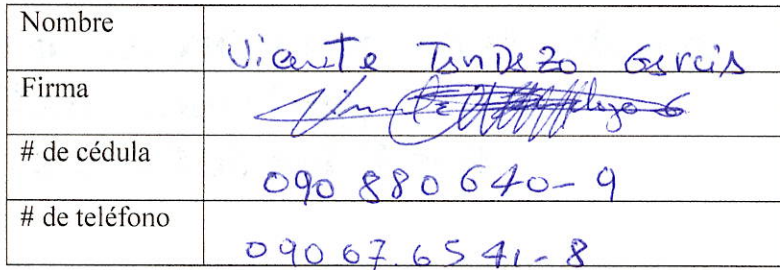 Nombre
Vicente Tandazo Garcia
Firma
# de cédula
090 880 640-9
# de teléfono
09067.6541-8